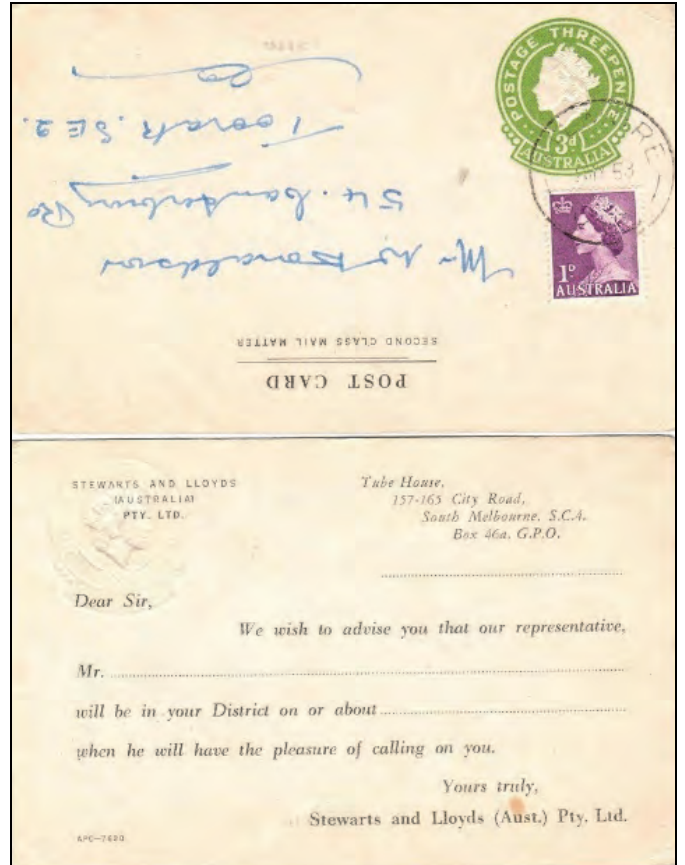 POSTAGE THREEPENCE
3d
AUSTRALIA
RE
53
1D
AUSTRALIA
POST CARD
SECOND CLASS MAIL MATTER
Mr
54. Canterbury Rd
Toorak. SE 2.
STEWARTS AND LLOYDS
(AUSTRALIA)
PTY. LTD.
Tube House,
157-165 City Road,
South Melbourne. S.C.4.
Box 46a. G.P.O.
Dear Sir,
We wish to advise you that our representative,
Mr.
will be in your District on or about
when he will have the pleasure of calling on you.
Yours truly,
Stewarts and Lloyds (Aust.) Pty. Ltd.
APC—7620